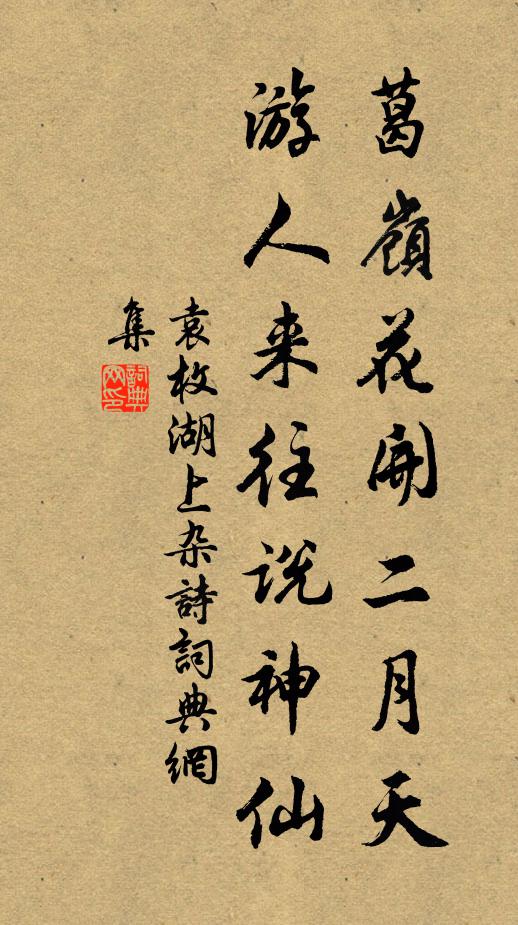 葛嶺花開二月天
游人来往说神仙
袁枚湖上杂詩詞典網
集
詞典
网印